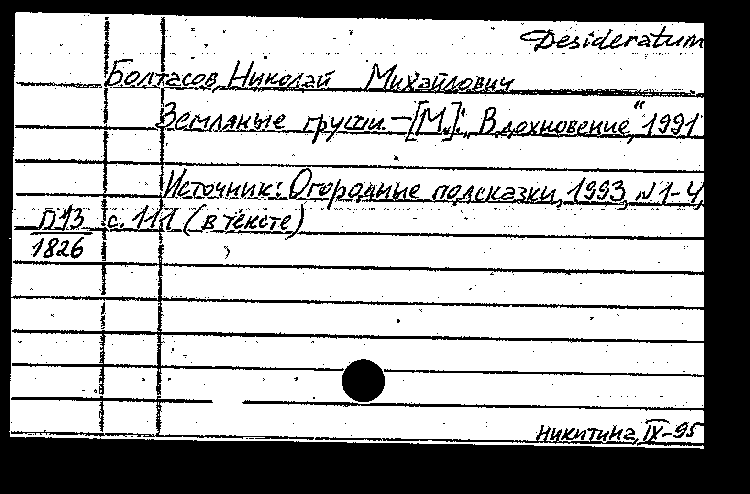 Desideratum
Болтасов, Николай Михайлович
Земляные груши. – [М.]: „Вдохновение“, 1991
Источник: Огородные подсказки, 1993, N 1-4,
П13 с. 111 (в тексте)
1826
Никитина, IX-95